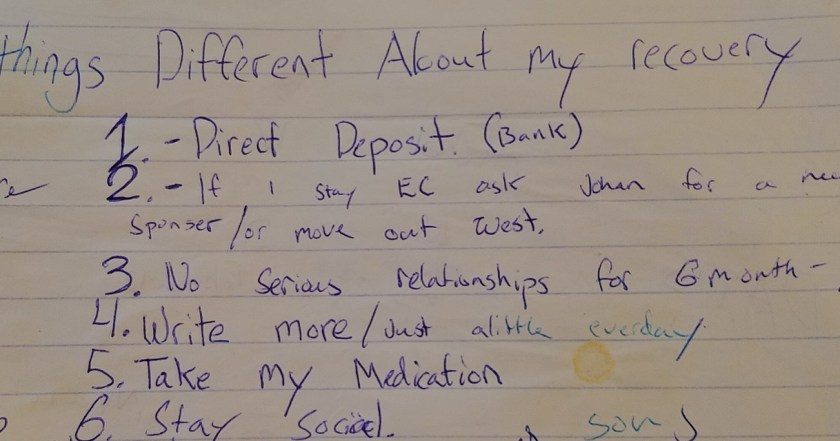 things Different About my recovery
1. - Direct Deposit. (Bank)
2. - If I stay EC ask Johan for a
Sponser /or move out West.
3. No Serious relationships for 6 month -
4. Write more / Just alittle everday
5. Take my Medication
6. Stay Social.